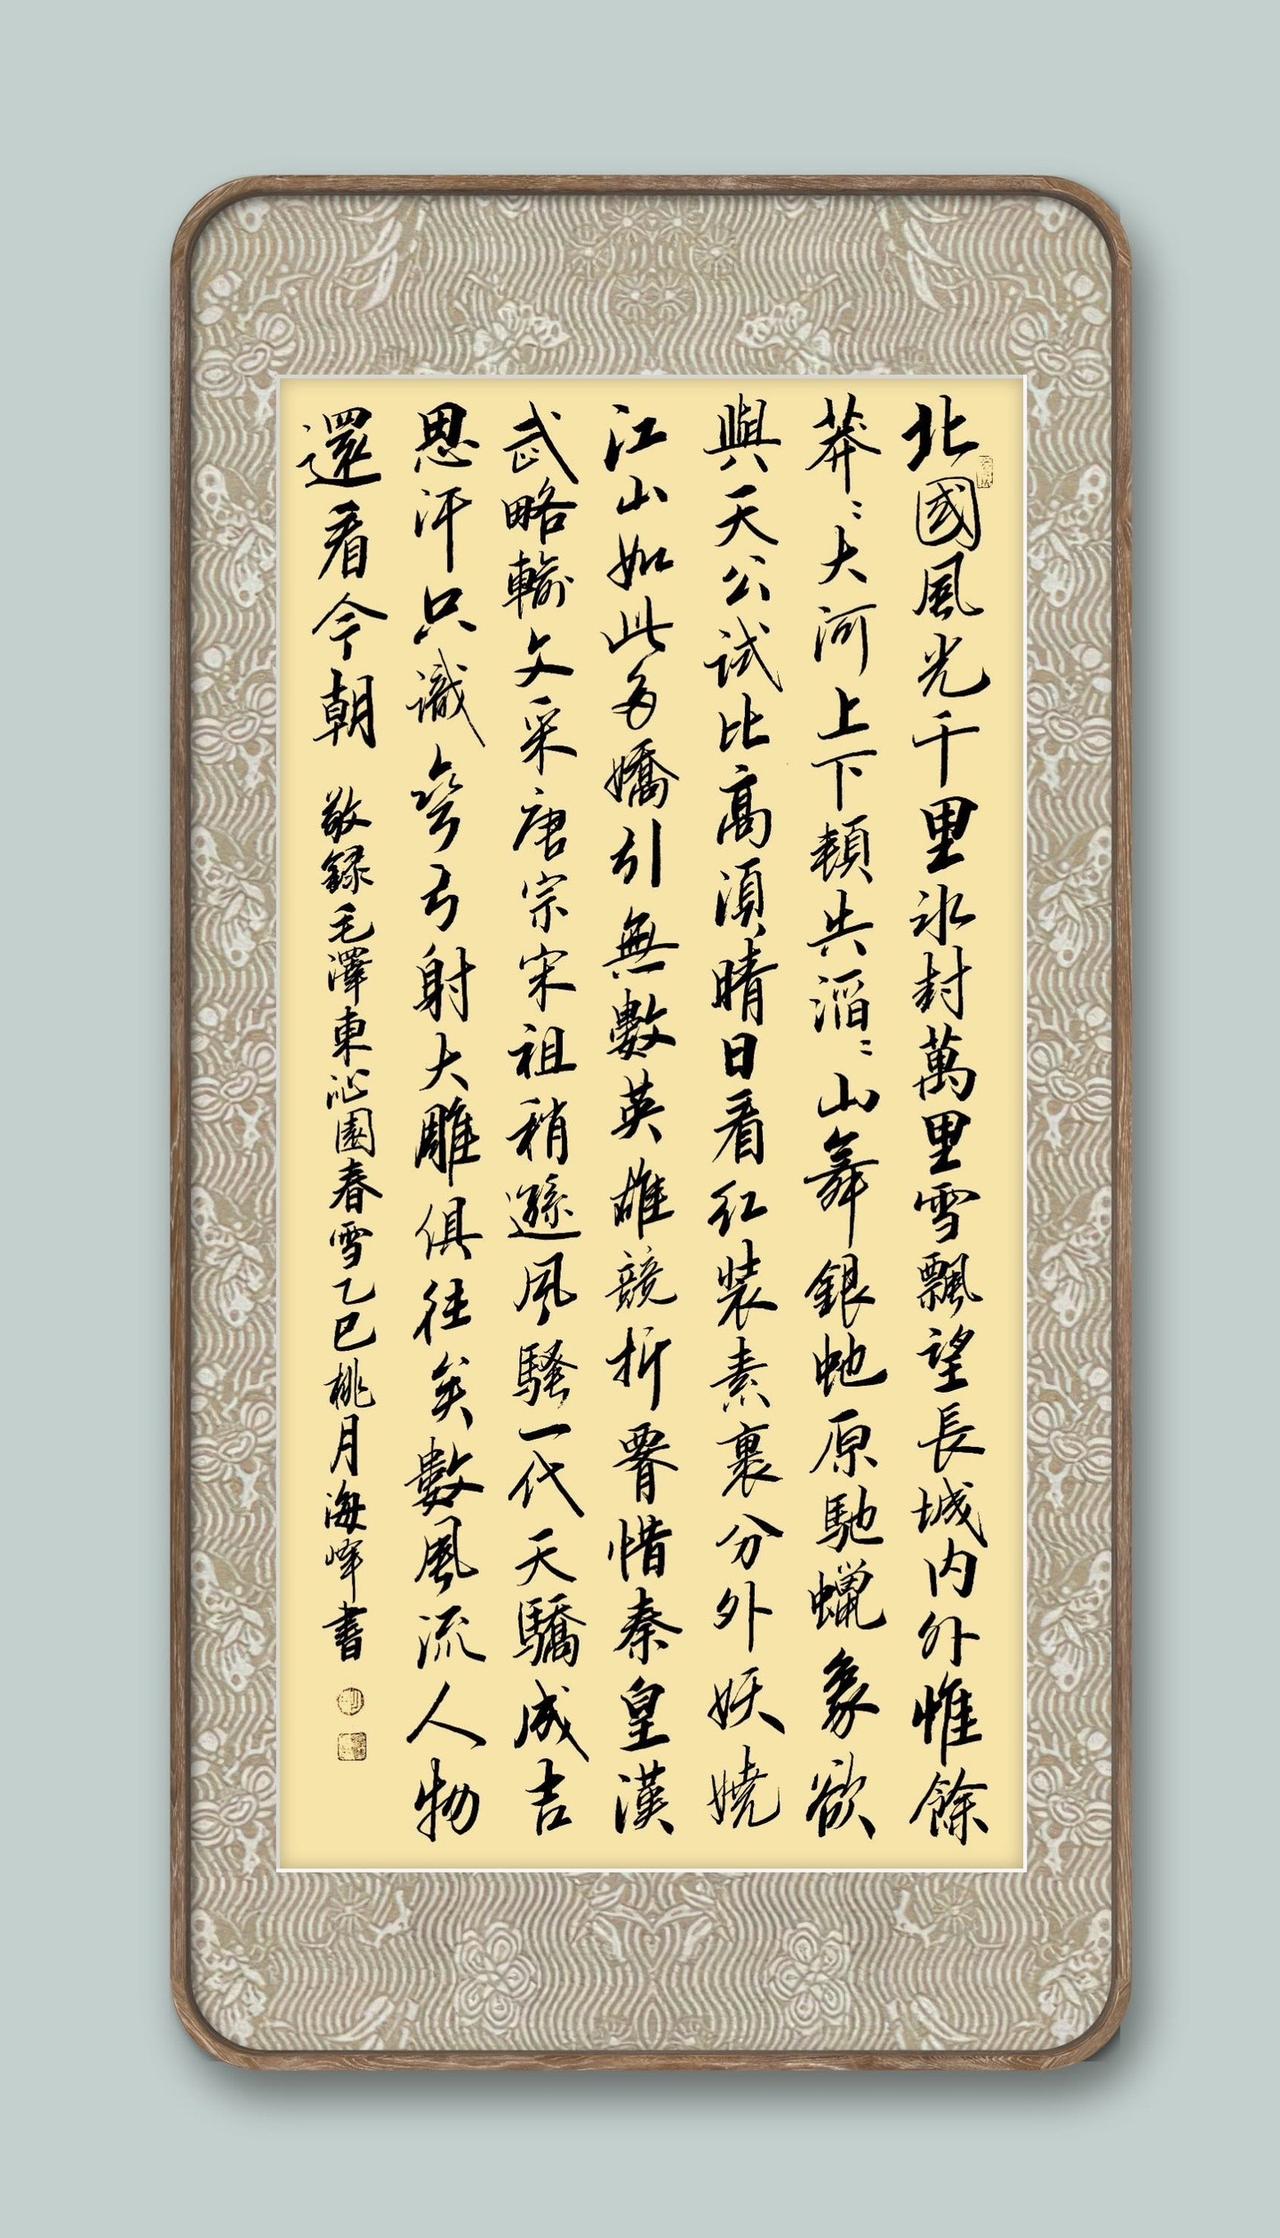 北國風光千里冰封萬里雪飄望長城内外惟餘
莽〻大河上下頓失滔〻山舞銀虵原馳蠟象欲
與天公試比高須晴日看红装素裹分外妖嬈
江山如此多嬌引無數英雄競折腰惜秦皇漢
武略輸文采唐宗宋祖稍遜風騷一代天驕成吉
思汗只識彎弓射大雕俱往矣數風流人物
還看今朝 敬録毛澤東沁園春雪乙巳桃月海峰書